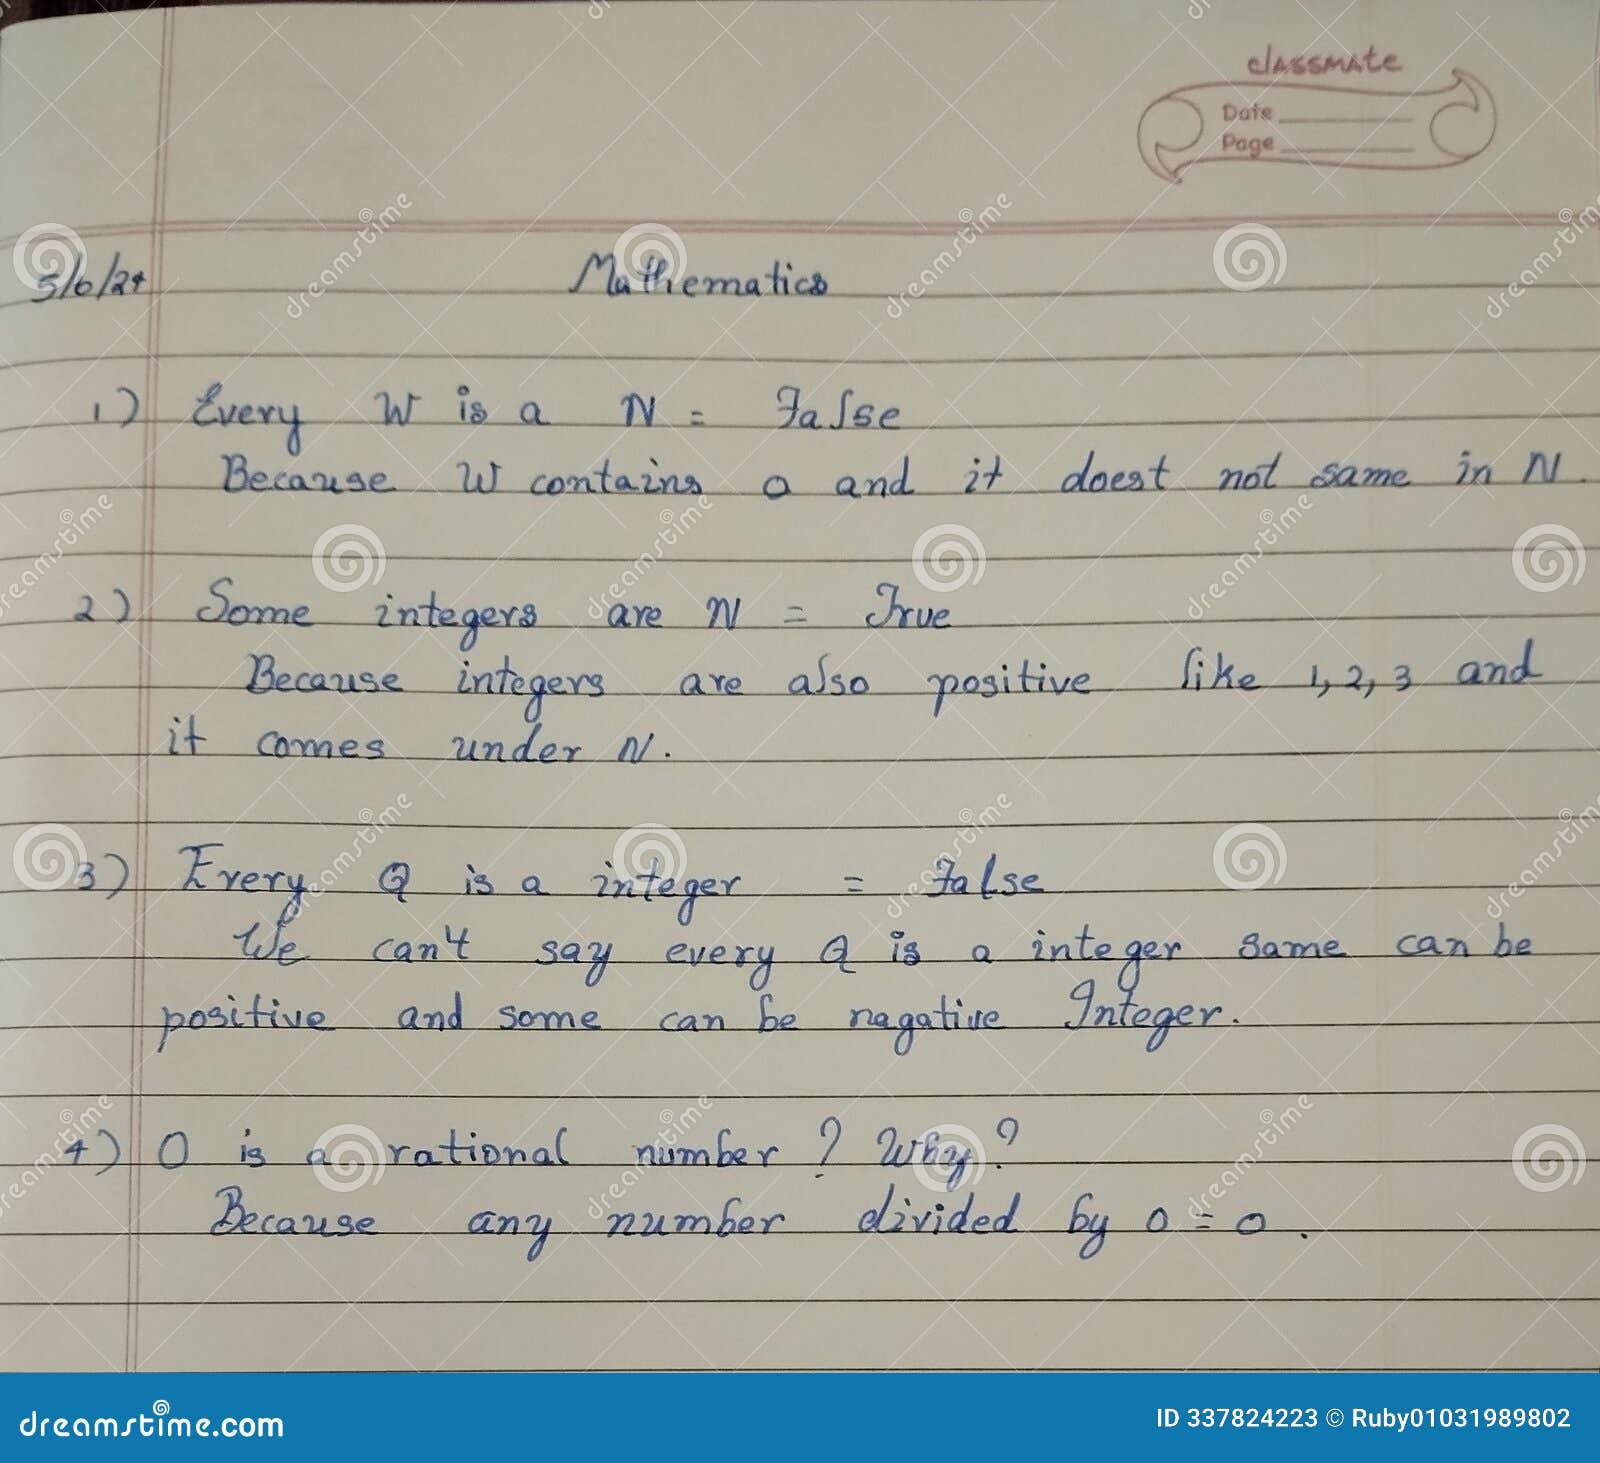 classmate
Date
Page
5/6/24 Mathematics
1) Every W is a N = False
Because W contains 0 and it doest not same in N.
2) Some integers are N = True
Because integers are also positive like 1, 2, 3 and
it comes under N.
3) Every Q is a integer = False
We can't say every Q is a integer same can be
positive and some can be nagative Integer.
4) 0 is a rational number ? Why ?
Because any number divided by 0 = 0.
dreamstime.com
ID 337824223 © Ruby01031989802